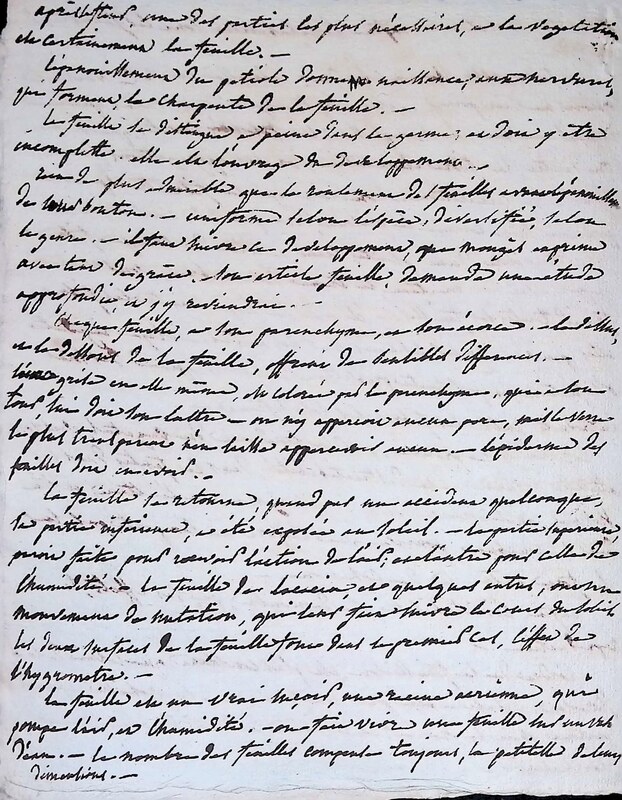 après l'est une des parties les plus nécessaires, a la vegetation
est certainement la feuille. —
L'épanouissement du petiole donne naissance, aux nervures,
qui forment, la charpente de la feuille. —
la feuille se distingue a peine dans le germe; et doit y etre
incomplette. elle est l'ouvrage du developpement. —
rien de plus admirable que le roulement des feuilles avant l'épanouissement
du bouton. — uniforme selon l'espèce, diversifié, selon
le genre. — il faut suivre ce developpement, que mongèz exprime
avec tant de grâce. — son article feuille, demande une etude
approfondie, et j'y reviendrai. —
Chaque feuille, a son parenchyme, et son écorce. — le dessus,
et le dessous de la feuille, offrent de sensibles differences. —
grise en elle même, est colorée par le parenchyme, qui a son
tour, lui doit son lustre — on n'y apperçoit aucun pore, mais le verre
le plus transparent n'en laisse appercevoir aucun. — l'épiderme des
feuilles doit en avoir. —
la feuille se retourne, quand par un accident quelconque,
sa partie inferieure, a été exposée au soleil. — la partie superieure,
parait faite pour recevoir l'action de l'air, et l'autre pour celle de
l'humidité. — la feuille de l'acacia, et quelques autres, ont un
mouvement de nutation, qui leur fait suivre le cours du soleil
les deux surfaces de la feuille font dans le premier cas, l'effet de
l'hygrometre. —
la feuille est un vrai suçoir, une racine aerienne, qui
pompe l'air, et l'humidité. — on fait vivre une feuille sur un verre
d'eau. — le nombre des feuilles compense toujours, la petitesse de leurs
dimentions. —